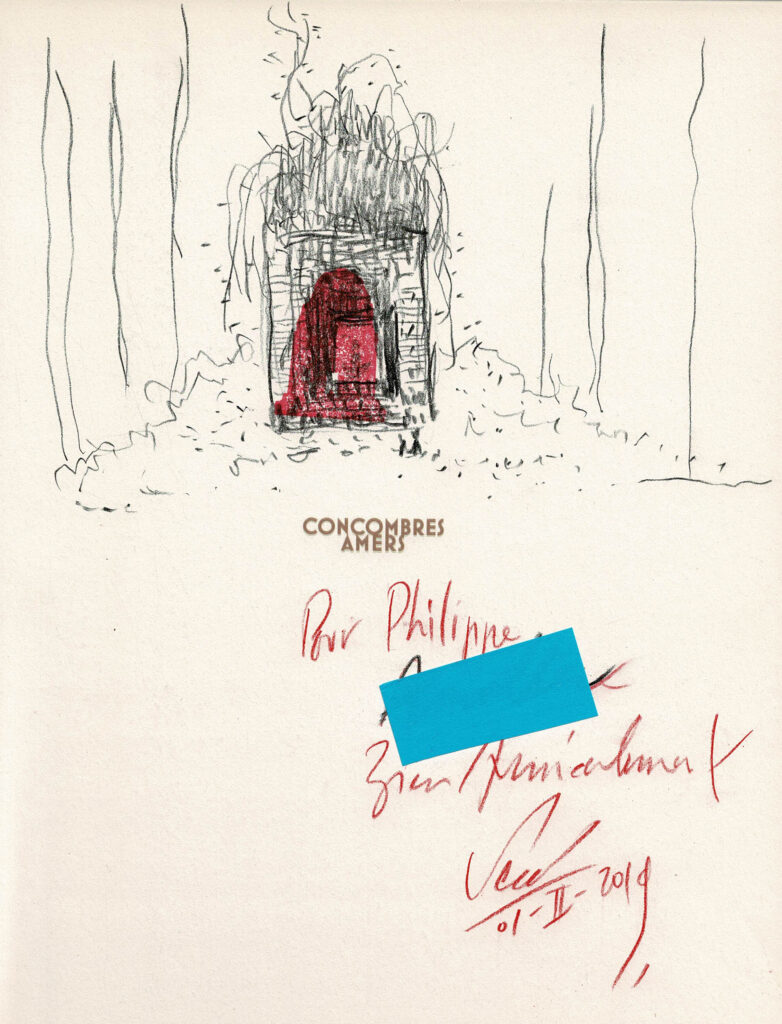 CONCOMBRES
AMERS
Pour Philippe
Bien Amicalement
Séra
01-II-2019